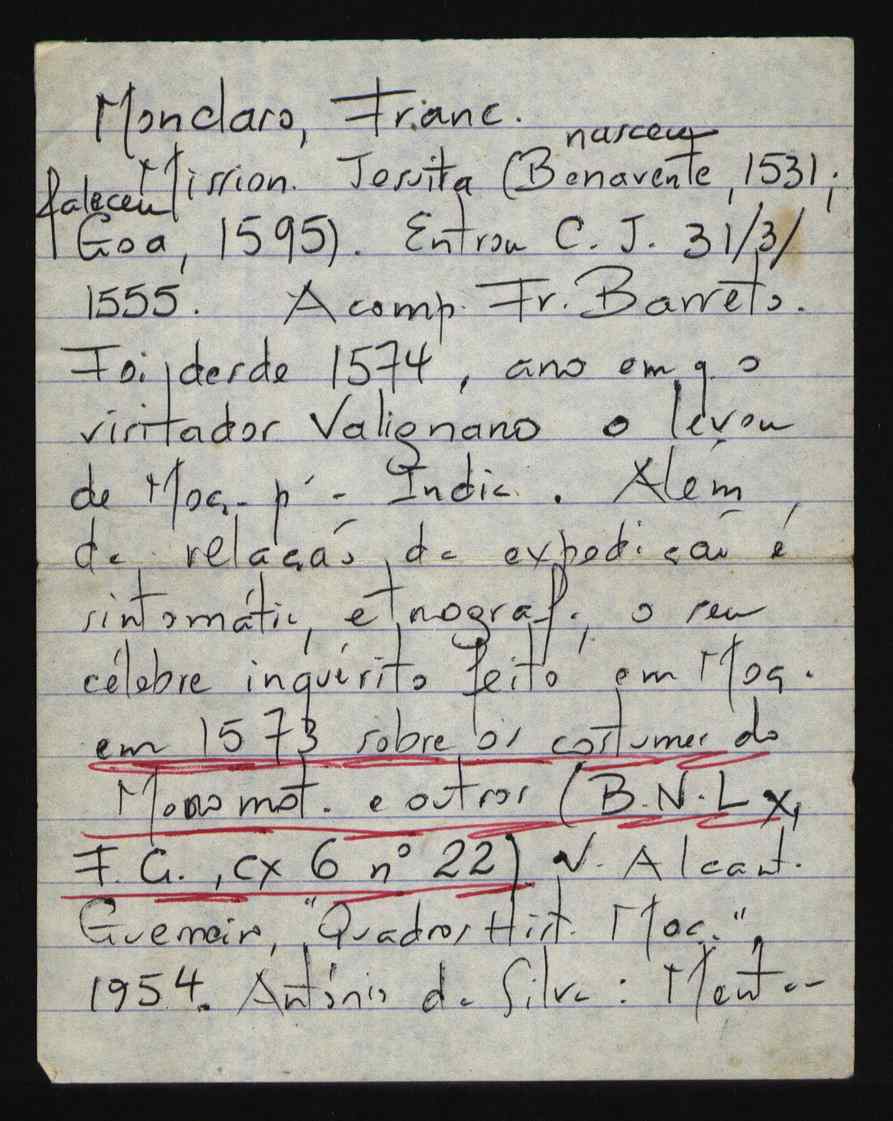 Monclaro, Franc.
nasceu
Mission. Jesuita (Benavente, 1531;
faleceu
Goa, 1595). Entrou C. J. 31/3/
1555. Acomp. Fr. Barreto.
Foi, desde 1574, ano em q. o
visitador Valignano o levou
de Moç. p´ - Índia. Além
da relação da expedição é
sintomátic, etnograf., o seu
célebre inquérito feito em Moç.
em 1573 sobre os costumes do
Monomot. e outros (B.N.Lx,
F. G., cx 6 nº 22) V. Alcant.
Guerreiro, "Quadros Hist. Moç.",
1954. António da Silva: Ment.-